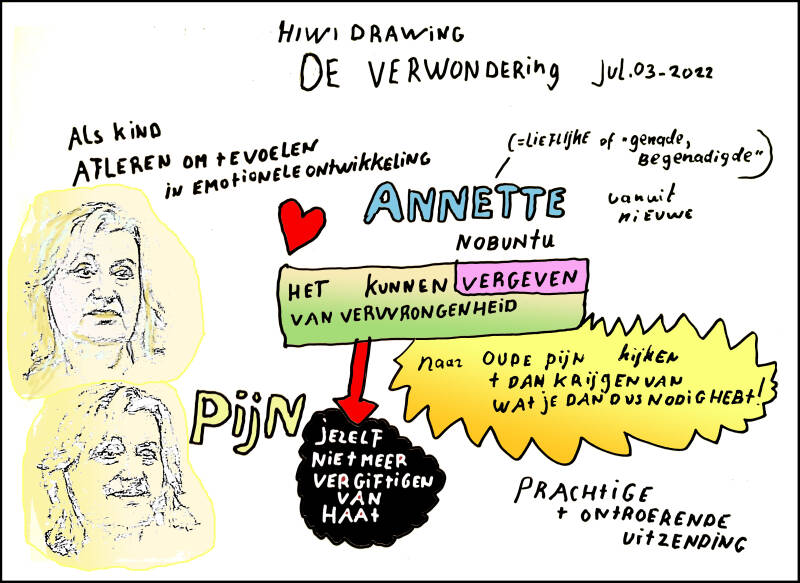 HIWI DRAWING
DE VERWONDERING jul.03-2022
ALS KIND
AFLEREN OM TE VOELEN
IN EMOTIONELE ONTWIKKELING
(=LIEFLIJKE OF "genade,
Begenadigde")
ANNETTE
vanuit
nieuwe
NOBUNTU
HET KUNNEN VERGEVEN
VAN VERWRONGENHEID
naar OUDE PIJN kijken
+ DAN KRIJGEN VAN
WAT JE DAN DUS NODIG HEBT!
PIJN
JEZELF
NIET MEER
VERGIFTIGEN
VAN
HAAT
PRACHTIGE
+ ONTROERENDE
UITZENDING